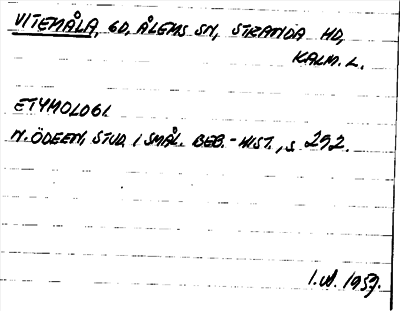 VITEMÅLA, GD, ÅLEMS SN, STRANDA HD,
KALM. L.
ETYMOLOGI.
N. ÖDEEN, STUD. I SMÅL. BEB.-HIST., s. 292.